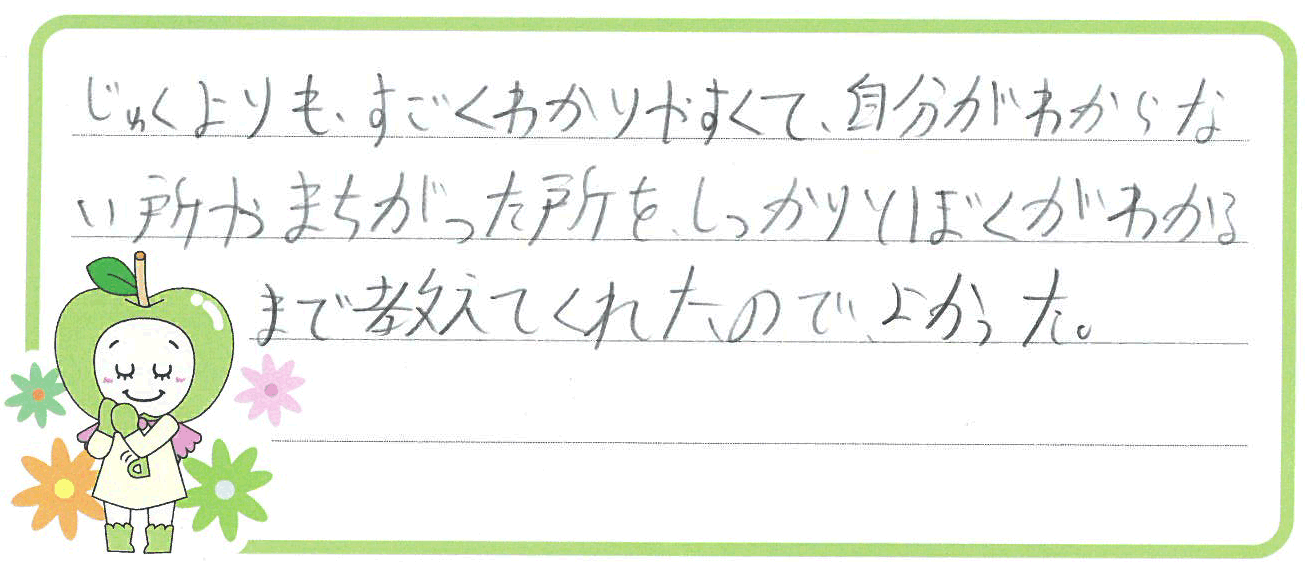 じゅくよりも、すごくわかりやすくて、自分がわからな
い所やまちがった所を、しっかりとぼくがわかる
まで教えてくれたので、よかった。